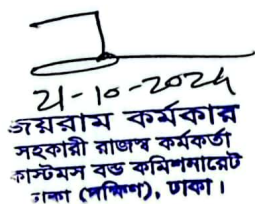 21-10-2024
জয়রাম কর্মকার
সহকারী রাজস্ব কর্মকর্তা
কাস্টমস বন্ড কমিশনারেট
ঢাকা (দক্ষিণ), ঢাকা।